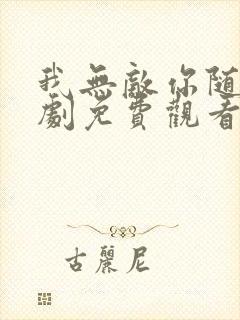 我無敵你随
劇免費觀看
古麗尼